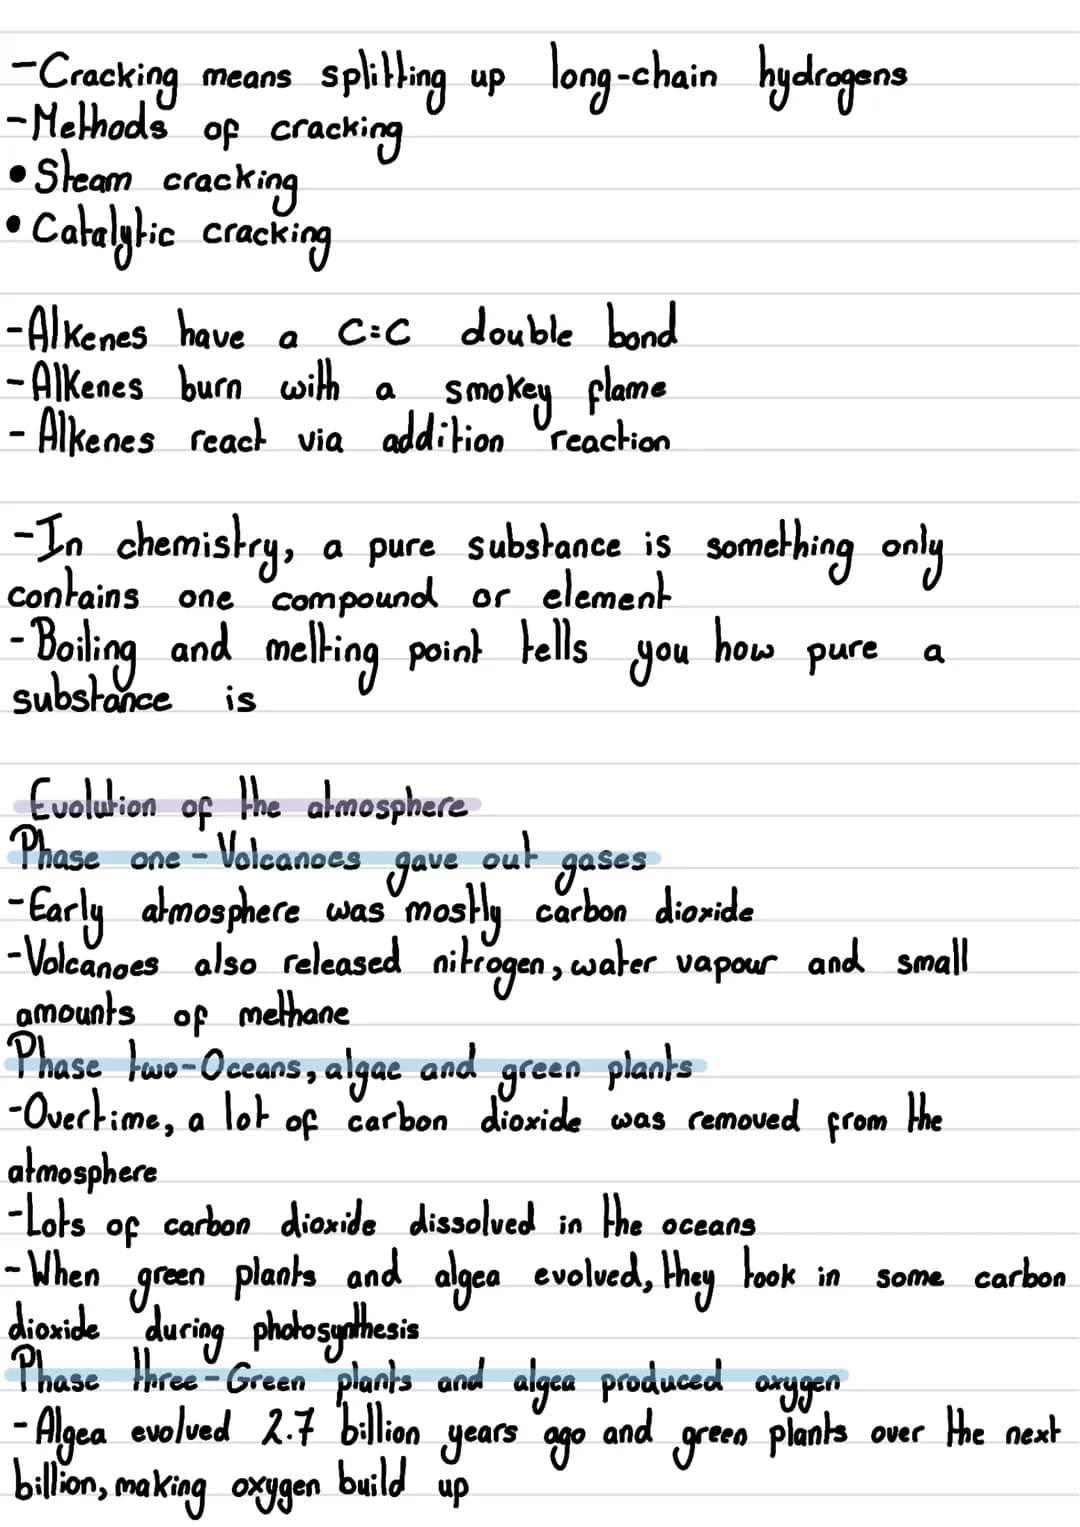 -Cracking means splitting up long-chain hydrogens
-Methods of cracking
• Steam cracking
• Catalytic cracking
-Alkenes have a C=C double bond
-Alkenes burn with a smokey flame
- Alkenes react via addition reaction
-In chemistry, a pure substance is something only
contains one compound or element
-Boiling and melting point tells you how pure a
substance is
Evolution of the atmosphere
Phase one - Volcanoes gave out gases
-Early atmosphere was mostly carbon dioxide
-Volcanoes also released nitrogen, water vapour and small
amounts of methane
Phase two-Oceans, algae and green plants
-Overtime, a lot of carbon dioxide was removed from the
atmosphere
-Lots of carbon dioxide dissolved in the oceans
-When green plants and algea evolved, they took in some carbon
dioxide during photosynthesis
Phase three-Green plants and algea produced oxygen
-Algea evolved 2.7 billion years ago and green plants over the next
billion, making oxygen build up